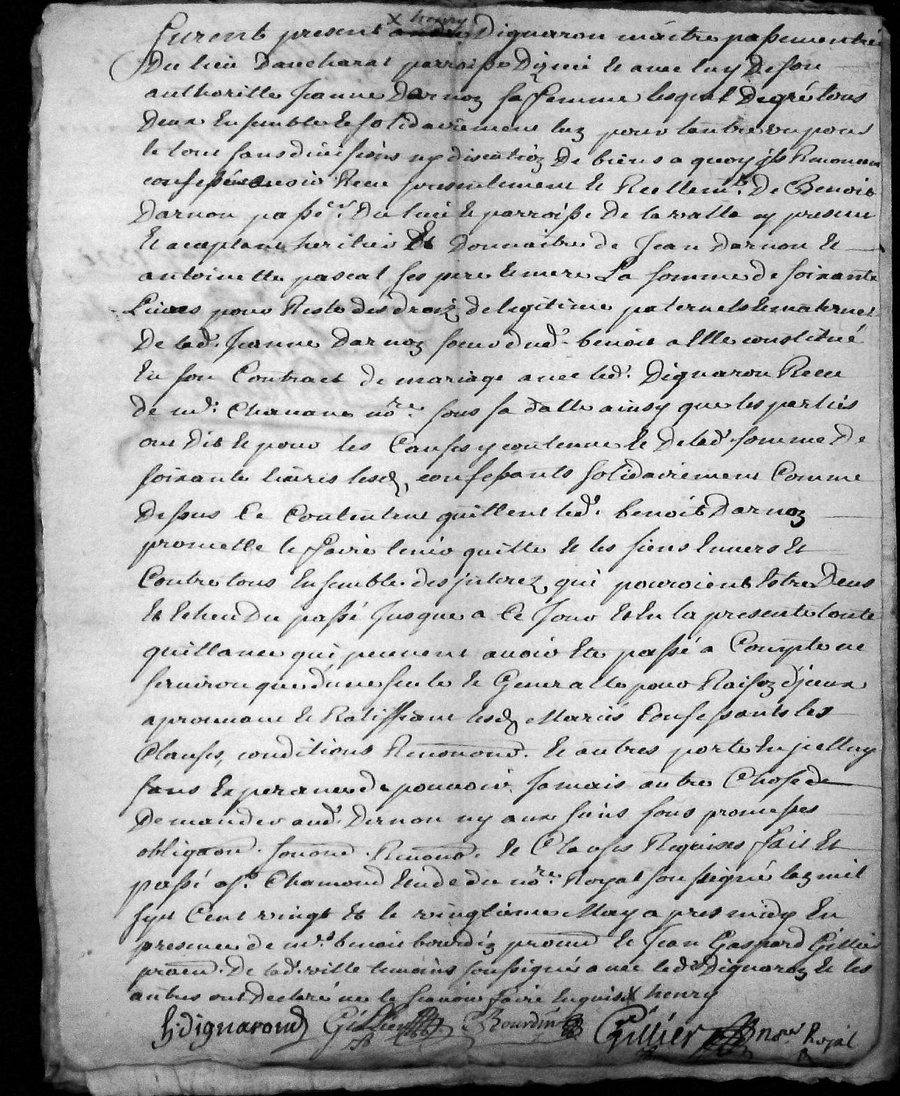 x henry
Furent present Dignaron maitre passementier
du lieu Dancharat parroisse Digni et avec luy de son
authoritté Jeanne Darnoz sa femme lesquel de gré tous
deux ensemble et solidairement lun pour lautre ou pour
le tout sans division ny discution de biens a quoy ils Renoncent
confessé avoir Receu presentement et Reellemt. De Benoit
Darnon passr. du lieu et parroisse de la valla y present
et aceptant heritier et Donnaitre de Jean Darnon et
antoinette pascal ses pere et mere La somme de soixante
Livres pour Reste des droiz de legitime paternels et maternel
De lad. Jeanne Darnoz soeur dud. benoit a Elle constitué
En son Contract de mariage avec led. Dignaron Receu
de mr. Chanane nore. sous sa datte ainsy que les parties
ont dit et pour les Causes y contenue et de lad. somme de
soixante livres lesd. confessants solidairement Comme
dessus se Contentent quittent led. benoit Darnoz
promette le faire tenir quitte et les siens Envers et
Contre tous Ensemble des jnterez qui pouroient Estre deus
et Echeu du passé jusque a Ce jour Et En la presente toute
quittance qui peuvent avoir Eté passé a Compte ne
serviron que d'une seule et Generalle pour Raison djceux
aprouvant et Ratiffiant lesd. Mariés Confessants les
Clauses, conditions Renoond. et autres porté En jcelluy
sans Esperance de pouvoir jamais autre Chose de
Demander aud. Darnon ny aux siens sous promesses
obligaon. Renond. et Clauses Requises fait et
passé a st. Chamond Etude du nore. Royal soussigné lan mil
sept Cent vingt et le vingtieme May apres midy En
presence de mr. benoit bourdin et Jean Gaspard Gillier
de lad. ville temoins soussignés avec led. Dignaron et les
autres ont declaré ne le scavoir faire Enquis x henry
h. dignarond Gillier Bourdin Gillier nore Royal